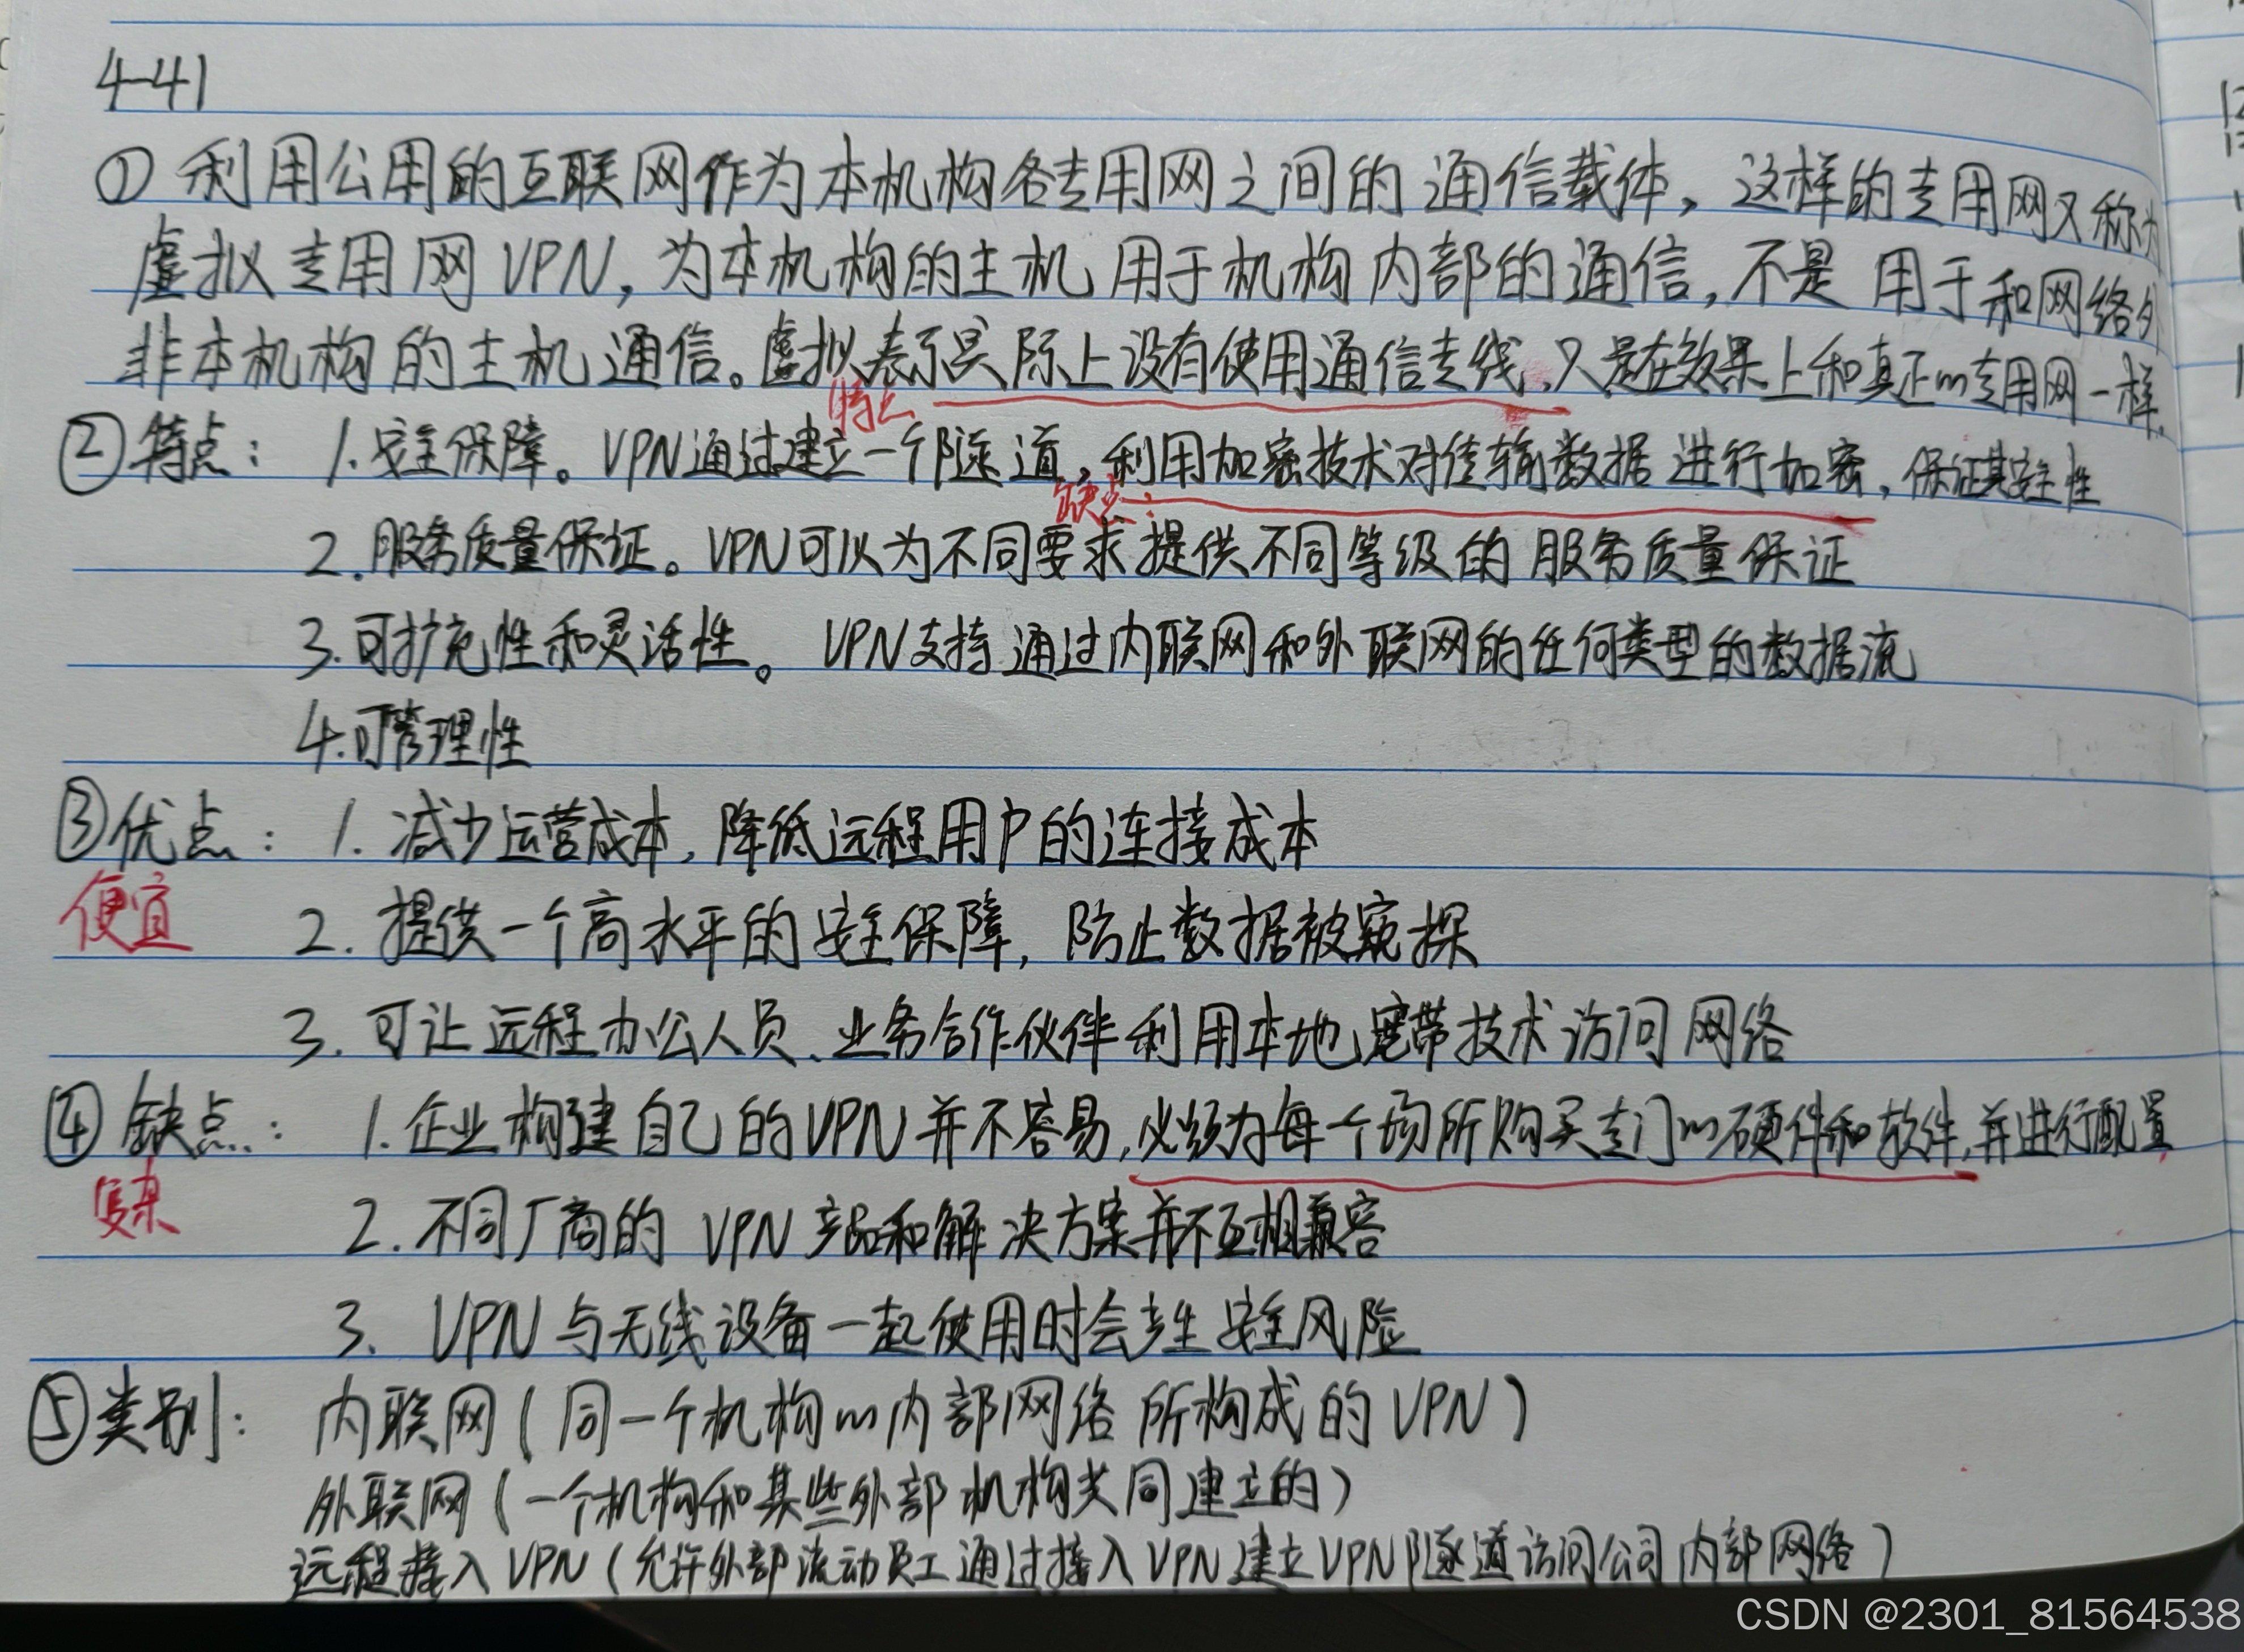 4-41
① 利用公用的互联网作为本机构各专用网之间的通信载体，这样的专用网又称为
虚拟专用网VPN，为本机构的主机用于机构内部的通信，不是用于和网络外
非本机构的主机通信。虚拟表示实际上没有使用通信专线，只是在效果上和真正的专用网一样。
特点
② 特点： 1.安全保障。VPN通过建立一个隧道，利用加密技术对传输数据进行加密，保证其安全性
缺点：
2.服务质量保证。VPN可以为不同要求提供不同等级的服务质量保证
3.可扩充性和灵活性。VPN支持通过内联网和外联网的任何类型的数据流
4.可管理性
③优点： 1. 减少运营成本，降低远程用户的连接成本
便宜
2. 提供一个高水平的安全保障，防止数据被窥探
3. 可让远程办公人员、业务合作伙伴利用本地宽带技术访问网络
④ 缺点： 1.企业构建自己的VPN并不容易，必须为每个场所购买专门的硬件和软件，并进行配置
复杂
2.不同厂商的VPN产品和解决方案并不互相兼容
3. VPN与无线设备一起使用时会产生安全风险
⑤类别： 内联网（同一个机构的内部网络所构成的VPN）
外联网（一个机构和某些外部机构共同建立的）
远程接入VPN（允许外部流动员工通过接入VPN建立VPN隧道访问公司内部网络）
CSDN @2301_81564538